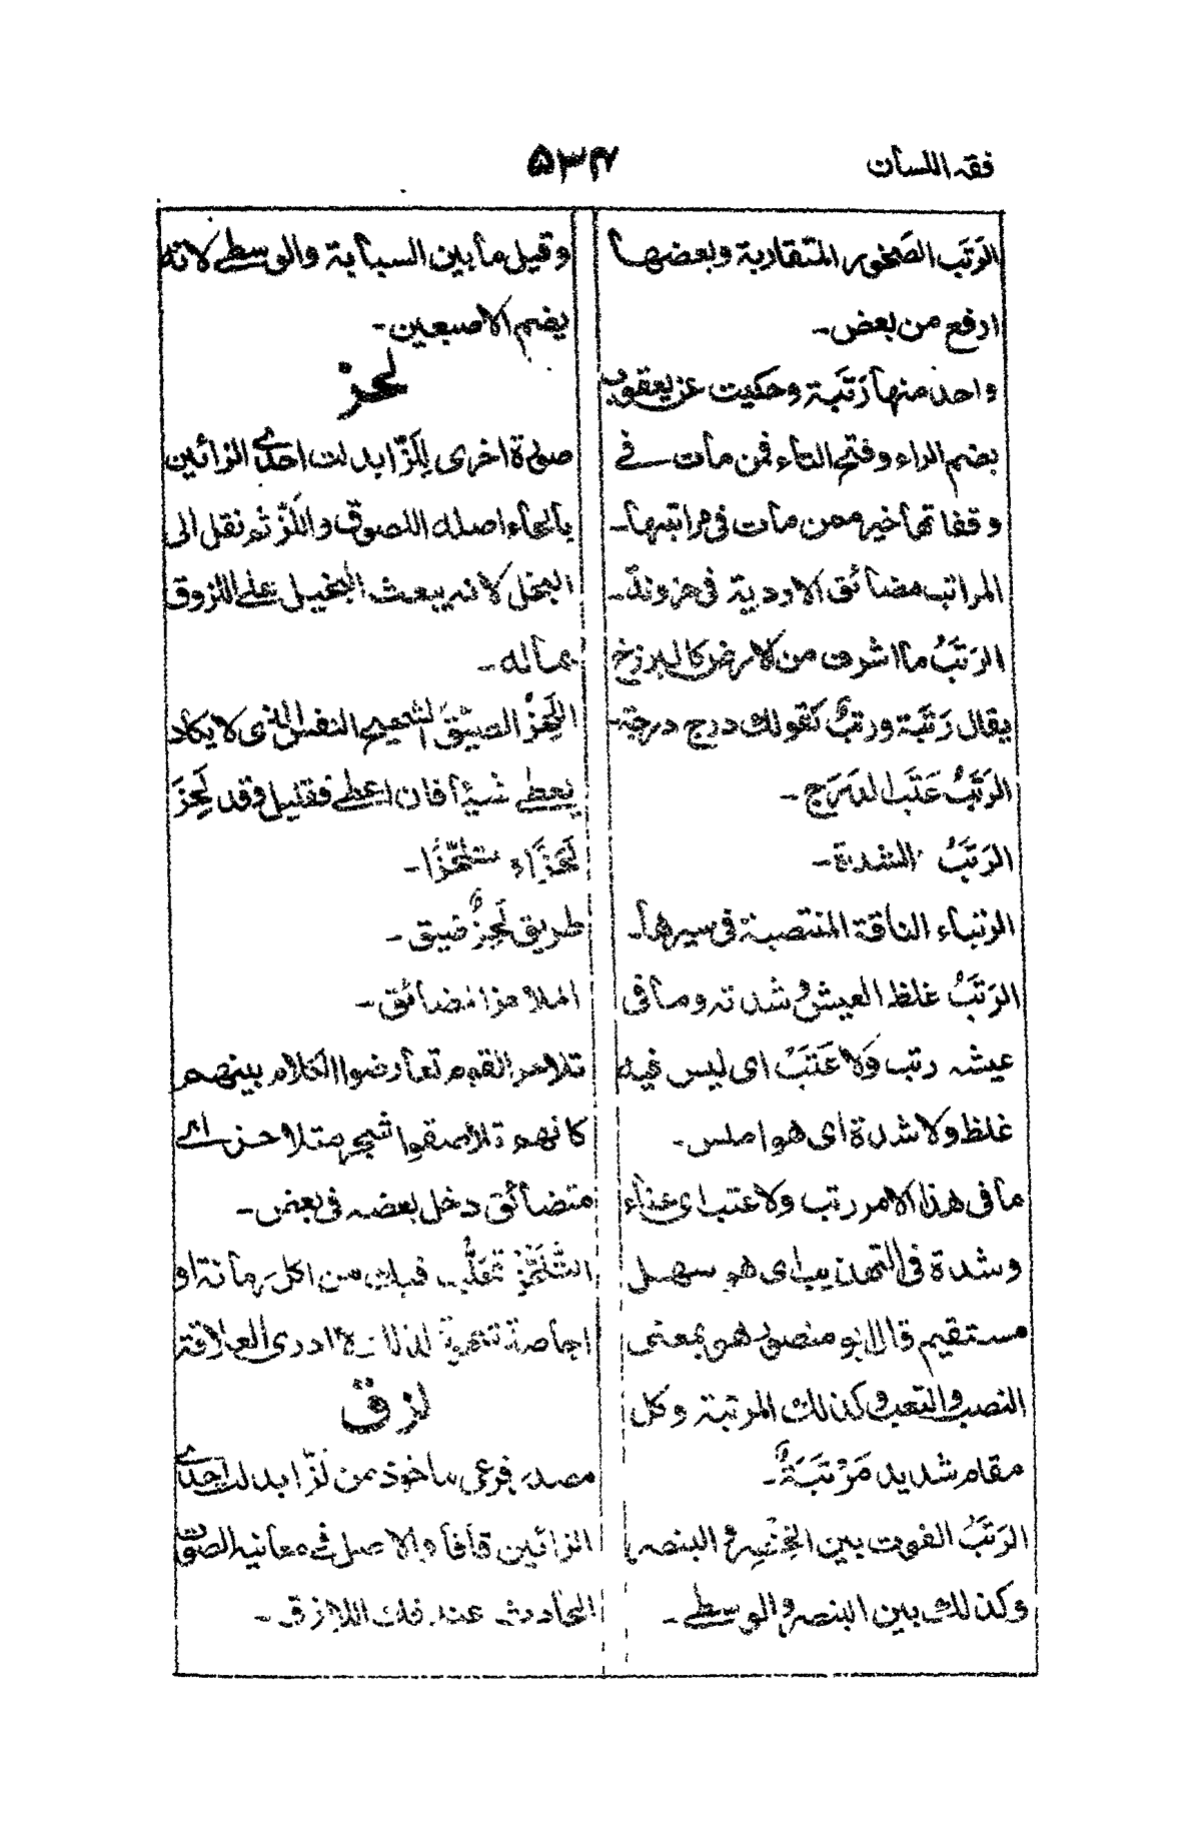 فقه اللسان
۵۳۴
الرَتَب الصَخور المتقاربة وبعضها
ارفع من بعض۔
واحد منها رَتَبَة وحكيت عن يعقوب
بضم الراء وفتح التاء فمن مات فے
وقفاتها خير ممن مات فى مراتبها۔
المراتب مضائق الاودية فى حزونة۔
الرَتَبُ ما اشرف من الارض كالبرزخ
يقال رَتَبَة ورتبٌ كقولك درج درجة۔
الرَتَبُ عَتَب الدرج۔
الرَتَبُ الشدة۔
الرتباء الناقة المنتصبة فى سيرها۔
الرَتَبُ غلظ العيش وشدته وما فى
عيشه رتب وَلا عَتَبٌ اى ليس فيه
غلظ ولا شدة اى هو املس۔
ما فى هذا الامر رتب ولا عتب اى عناء
وشدة فى التهذيب اى هو سهل
مستقيم قال ابو منصور هو بمعنى
النصب والتعب وكذلك المرتبة وكل
مقام شديد مَرْتَبَةٌ۔
الرَتَبُ الفوت بين الخِنْصِر والبنصر
وكذلك بين البنصر والوسطے۔
وقيل ما بين السبابة والوسطے لانه
يضم الاصبعين۔
لحز
صورة اخرى لِلَزّ ابدلت احدے الزائين
بالحاء اصله اللصوق واللَزّ ثم نقل الى
البخل لانه يبعث البخيل علے اللزوق
بماله۔
اللَحِزُ الضيق الشحيح النفس الذى لا يكاد
يعطے شيئا فان اعطے فقليل وقد لَحِزَ
لَحَزًا و تلحّزًا۔
طريق لَحِزٌ ضيق۔
الملاحز المضائق۔
تلاحز القوم تعارضوا الكلام بينهم
كانهم تلاصقوا شجر متلاحز اے
متضائق دخل بعضه فى بعض۔
تحَلُّب فيك من اكل رمانة او
اجاصة شهوة لذلك ادرى العلاقة
لزق
مصدر فرعى ماخوذ من لَزّ ابدلت احدے
الزائين قافا والاصل فے معانيه الصوت
الحادث عند فك اللازق۔